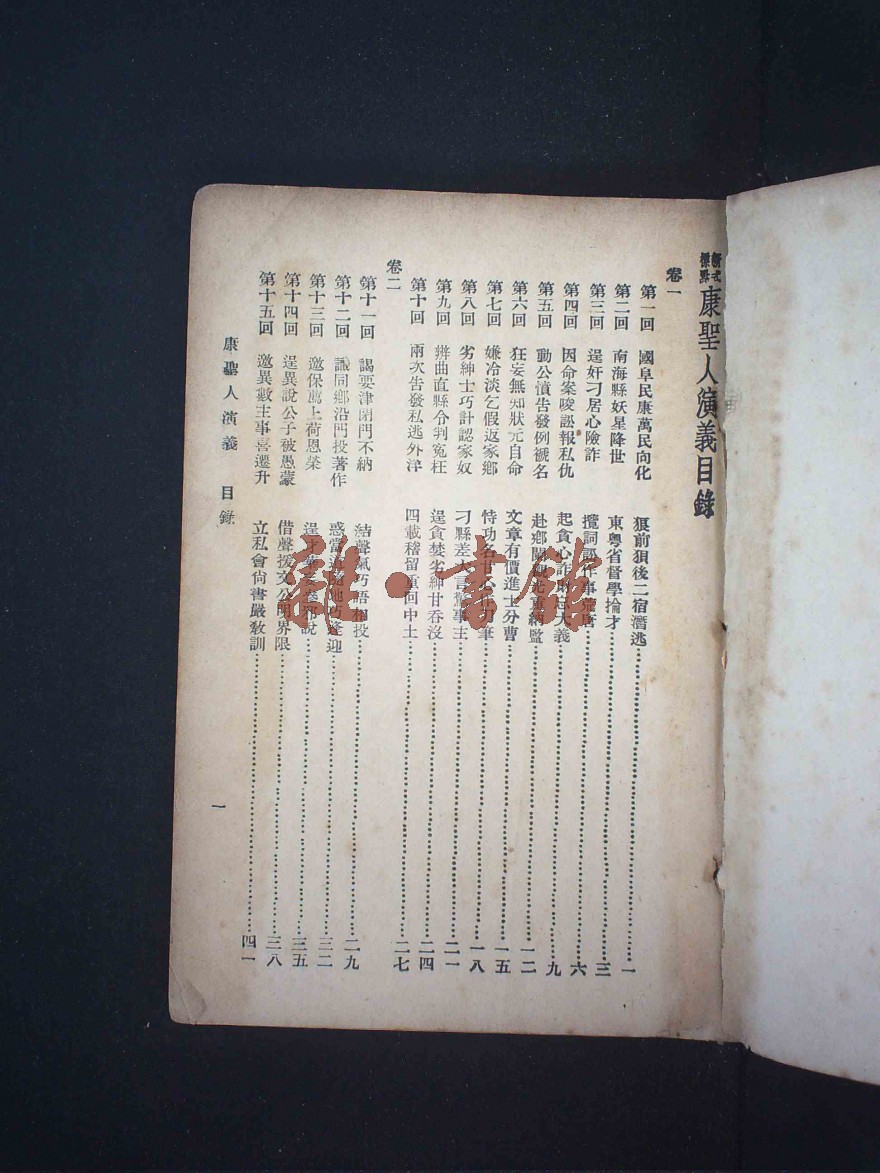 新式標點 康聖人演義目錄
卷一
第一回 國阜民康萬民向化 狼前狽後二宿潛逃 一
第二回 南海縣妖星降世 東粵省督學掄才 三
第三回 逞奸刁居心險詐 攬詞訟作事 六
第四回 因命案唆訟報私仇 起貪心詐財忘大義 九
第五回 動公憤告發例褫名 赴鄉闈觀光重納監 一二
第六回 狂妄無知狀元自命 文章有價進士分曹 一五
第七回 嫌冷淡乞假返家鄉 恃功名甘 筆 一八
第八回 劣紳士巧計認家奴 刁縣差大言驚事主 二一
第九回 辨曲直縣令判冤枉 逞貪婪劣紳甘吞沒 二四
第十回 兩次告發私逃外洋 四載稽留重回中土 二七
卷二
第十一回 謁要津閉門不納 結聲氣巧語相投 二九
第十二回 議同鄉沿門投著作 惑當道 地巧逢迎 三二
第十三回 邀保薦上荷恩榮 逞才華 說 三五
第十四回 逞異說公子被愚蒙 借聲援文公明界限 三八
第十五回 邀異數主事喜遷升 立私會尙書嚴敎訓 四一
康聖人演義 目錄
一
龍·書館